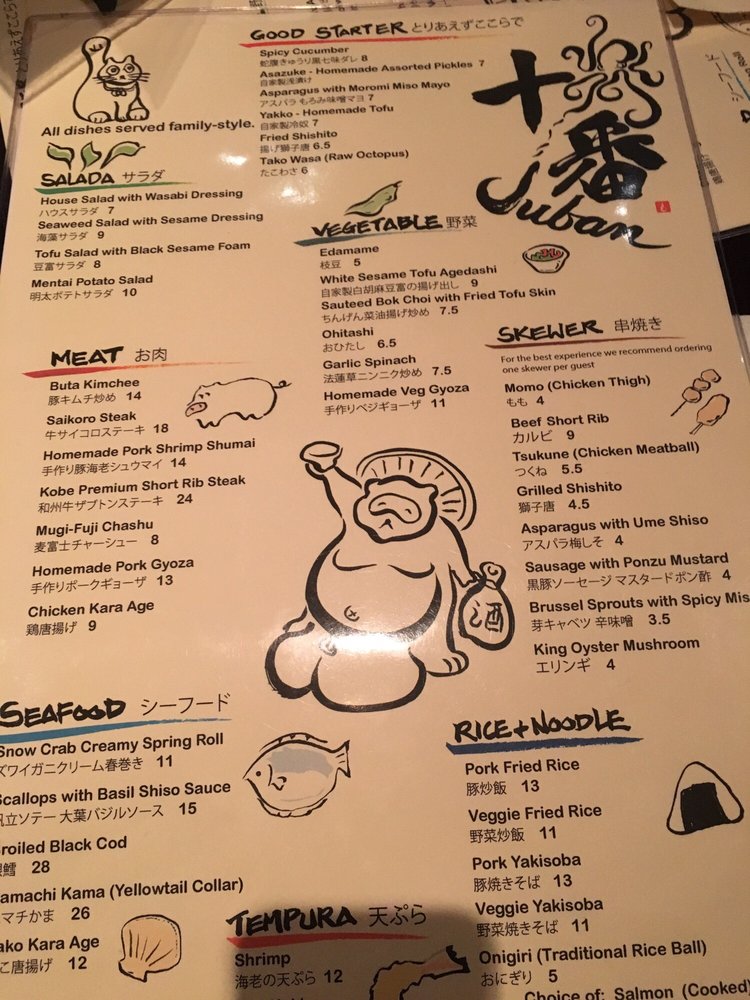 GOOD STARTER とりあえずここらで
Spicy Cucumber
蛇腹きゅうり黒七味ダレ 8
Asazuke - Homemade Assorted Pickles 7
自家製浅漬け
Asparagus with Moromi Miso Mayo
アスパラ もろみ味噌マヨ 7
Yakko - Homemade Tofu
自家製冷奴 7
Fried Shishito
揚げ獅子唐 6.5
Tako Wasa (Raw Octopus)
たこわさ 6
十番
Juban
All dishes served family-style.
SALADA サラダ
House Salad with Wasabi Dressing
ハウスサラダ 7
Seaweed Salad with Sesame Dressing
海藻サラダ 9
Tofu Salad with Black Sesame Foam
豆富サラダ 8
Mentai Potato Salad
明太ポテトサラダ 10
VEGETABLE 野菜
Edamame
枝豆 5
White Sesame Tofu Agedashi
自家製白胡麻豆富の揚げ出し 9
Sauteed Bok Choi with Fried Tofu Skin
ちんげん菜油揚げ炒め 7.5
Ohitashi
おひたし 6.5
Garlic Spinach
法蓮草ニンニク炒め 7.5
Homemade Veg Gyoza
手作りベジギョーザ 11
MEAT お肉
Buta Kimchee
豚キムチ炒め 14
Saikoro Steak
牛サイコロステーキ 18
Homemade Pork Shrimp Shumai
手作り豚海老シュウマイ 14
Kobe Premium Short Rib Steak
和州牛ザブトンステーキ 24
Mugi-Fuji Chashu
麦富士チャーシュー 8
Homemade Pork Gyoza
手作りポークギョーザ 13
Chicken Kara Age
鶏唐揚げ 9
SKEWER 串焼き
For the best experience we recommend ordering
one skewer per guest
Momo (Chicken Thigh)
もも 4
Beef Short Rib
カルビ 9
Tsukune (Chicken Meatball)
つくね 5.5
Grilled Shishito
獅子唐 4.5
Asparagus with Ume Shiso
アスパラ梅しそ 4
Sausage with Ponzu Mustard
黒豚ソーセージ マスタードポン酢 4
Brussel Sprouts with Spicy Mis
芽キャベツ 辛味噌 3.5
King Oyster Mushroom
エリンギ 4
酒
SEAFOOD シーフード
Snow Crab Creamy Spring Roll
ズワイガニクリーム春巻き 11
Scallops with Basil Shiso Sauce
帆立ソテー 大葉バジルソース 15
roiled Black Cod
鱈 28
amachi Kama (Yellowtail Collar)
マチかま 26
ako Kara Age
こ唐揚げ 12
TEMPURA 天ぷら
Shrimp
海老の天ぷら 12
RICE+NOODLE
Pork Fried Rice
豚炒飯 13
Veggie Fried Rice
野菜炒飯 11
Pork Yakisoba
豚焼きそば 13
Veggie Yakisoba
野菜焼きそば 11
Onigiri (Traditional Rice Ball)
おにぎり 5
Choice of: Salmon (Cooked)